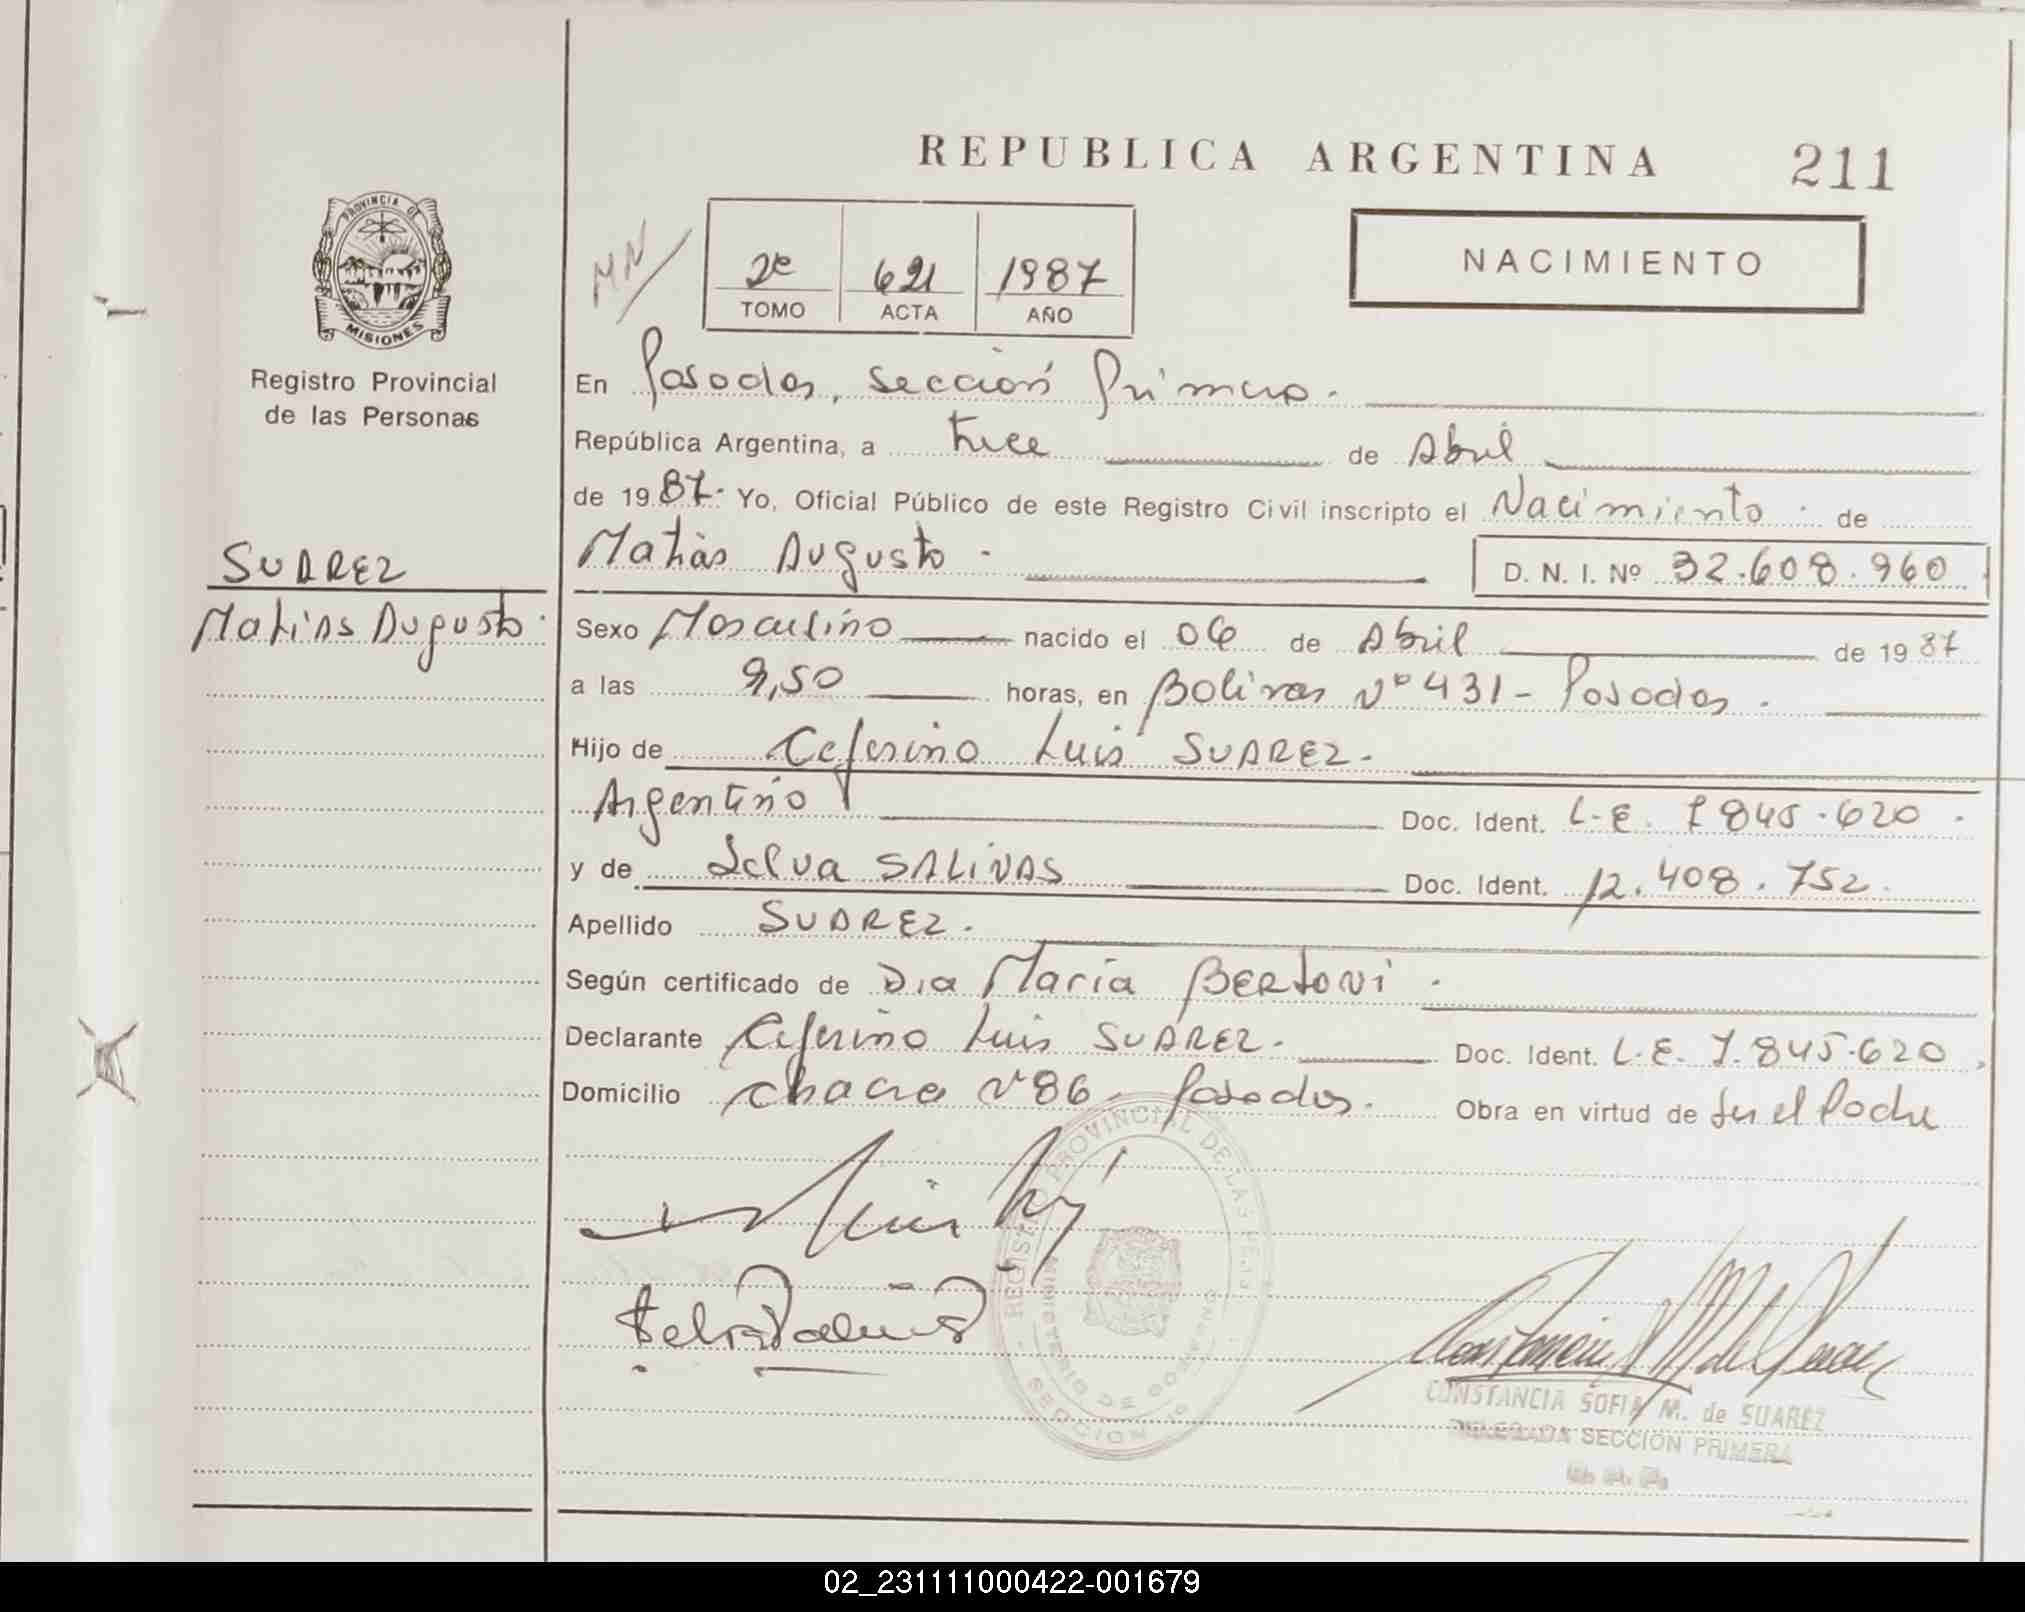 REPUBLICA ARGENTINA 211
NACIMIENTO
MN
2º 621 1987
TOMO ACTA AÑO
PROVINCIA DE
MISIONES
Registro Provincial
de las Personas
SUAREZ
Matias Augusto.
En Posadas, sección Primera.
República Argentina, a trece de Abril
de 1987. Yo, Oficial Público de este Registro Civil inscripto el Nacimiento de
Matias Augusto. D. N. I. Nº 32.608.960
Sexo Masculino nacido el 06 de Abril de 1987
a las 9,50 horas, en Bolivar Nº 431 - Posadas.
Hijo de Ceferino Luis SUAREZ.
Argentino Doc. Ident. L.E. 7.845.620.
y de Selva SALINAS Doc. Ident. 12.408.752.
Apellido SUAREZ.
Según certificado de Dra Maria BERTONI.
Declarante Ceferino Luis SUAREZ. Doc. Ident. L.E. 7.845.620.
Domicilio Chacra Nº 86. Posadas. Obra en virtud de ser el Padre
REGISTRO PROVINCIAL DE LAS
MINISTERIO DE GOBIERNO
CONSTANCIA SOFIA M. de SUAREZ
DELEGADA SECCIÓN PRIMERA
02_231111000422-001679